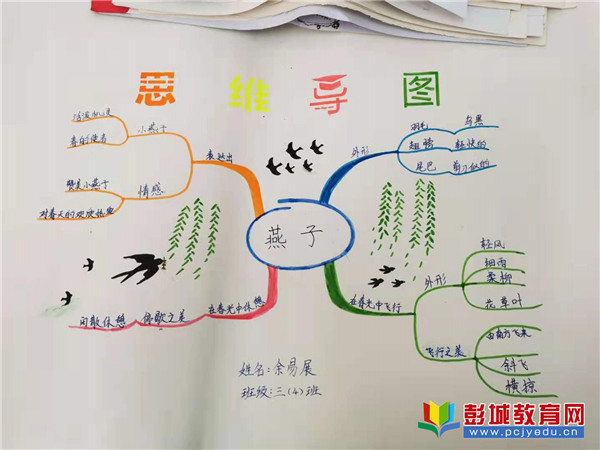 思维导图
活泼机灵
春的使者
小燕子
赞美小燕子
情感
表达出
外形
羽毛
乌黑
翅膀
轻快的
尾巴
剪刀似的
燕子
闲散休想
停歇之美
在春光中休想
在春光中飞行
外形
轻风
细雨
柔柳
花草叶
飞行之美
由南方飞来
斜飞
横掠
姓名:余易展
班级:三(4)班
彭城教育网
www.pcjyedu.cn